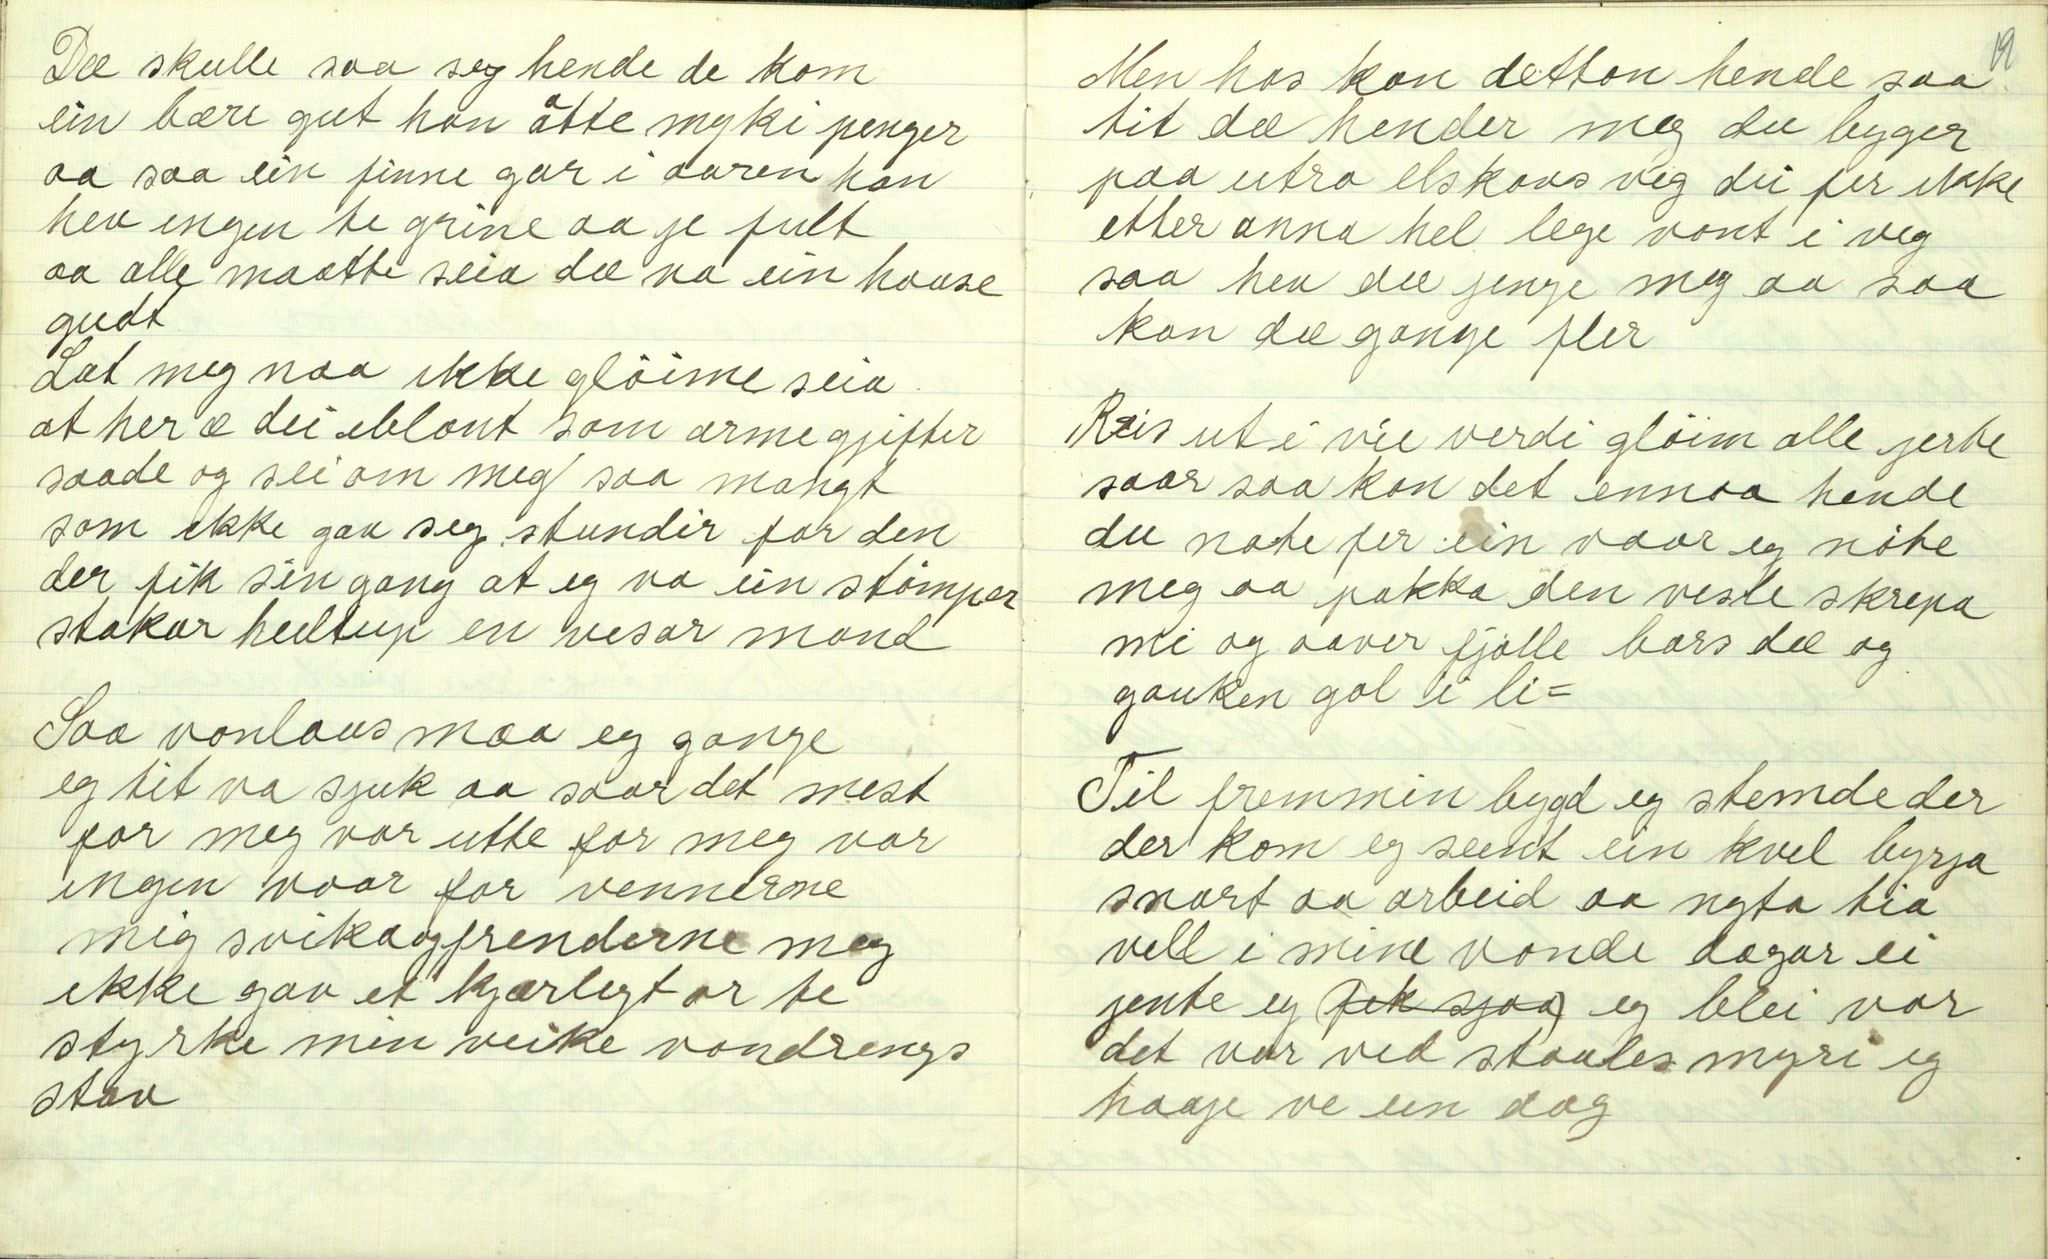 Dæ skulle saa seg hende de kom
ein bære gut han åtte myki penger
aa saa ein finne gar i aaren han
hev engen te grine aa je fult
aa alle maatte seia dæ va ein haase
gudt
Lat meg naa ikke glöime seia
at her æ dei eblant som arme gjifter
saade og sei om meg saa mangt
som ikke gav seg stundir for den
der fik sin gang at eg va ein stömper
stakar heeltup en vesar mand
Saa vonlaus maa eg gange
eg tit va sjuk aa saar det mest
for meg var utte for meg var
ingen vaar for vennerne
mig svik og frenderne meg
ikke gav et kjærlegt or te
styrke min veike vandrengs
stav
19
Men hos kan dettan hende saa
tit dæ hender meg du byger
paa utra elskaas veg du fer ikke
etter anna hel lege vont i veg
saa hev dæ jenge meg aa saa
kan dæ gange fler
Reis ut i vie verdi glöim alle jerte
saar saa kan det ennaa hende
du nate fer ein vaar eg nöte
meg aa pakka den vesle skrepa
mi og aaver fjölle bars dæ og
gauken gol i li=
Til fremmin bygd eg stemde der
der kom eg seent ein kvel byrja
snart aa arbeid aa nyta tia
vell i mine vonde dagar ei
jente eg (fek sjaa) eg blei var
det var ved staales myri eg
haaje ve ein dag